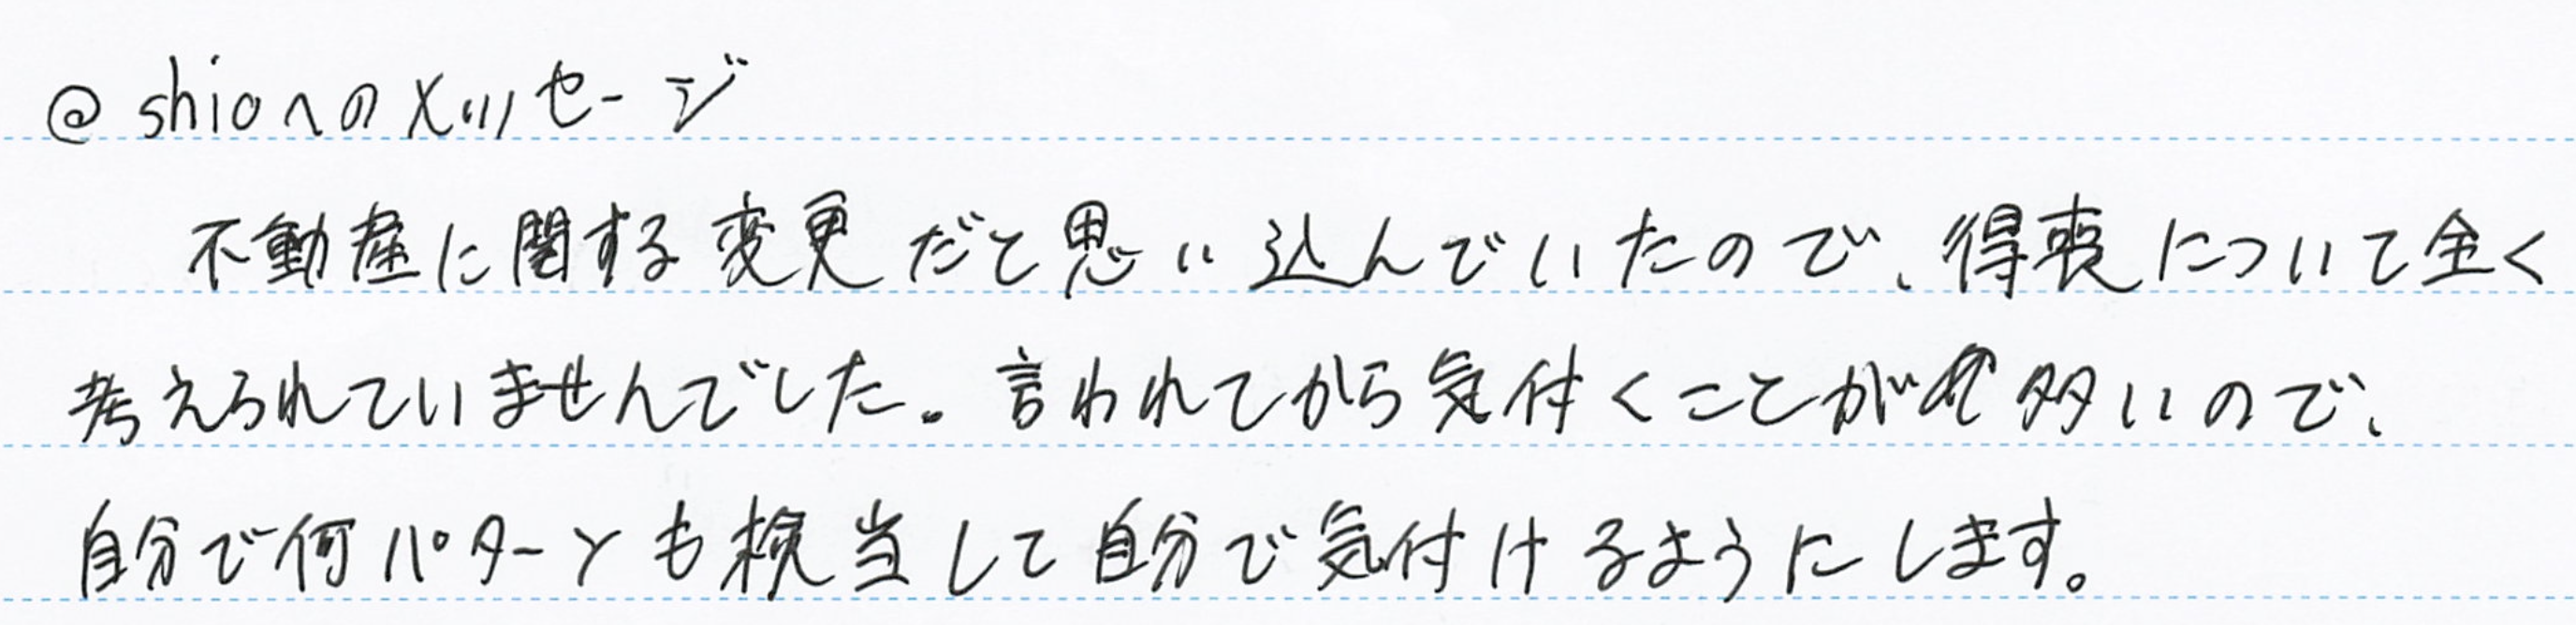 @shioへのメッセージ
不動産に関する変更だと思い込んでいたので、得喪について全く
考えられていませんでした。言われてから気付くことが多いので、
自分で何パターンも検当して自分で気付けるようにします。